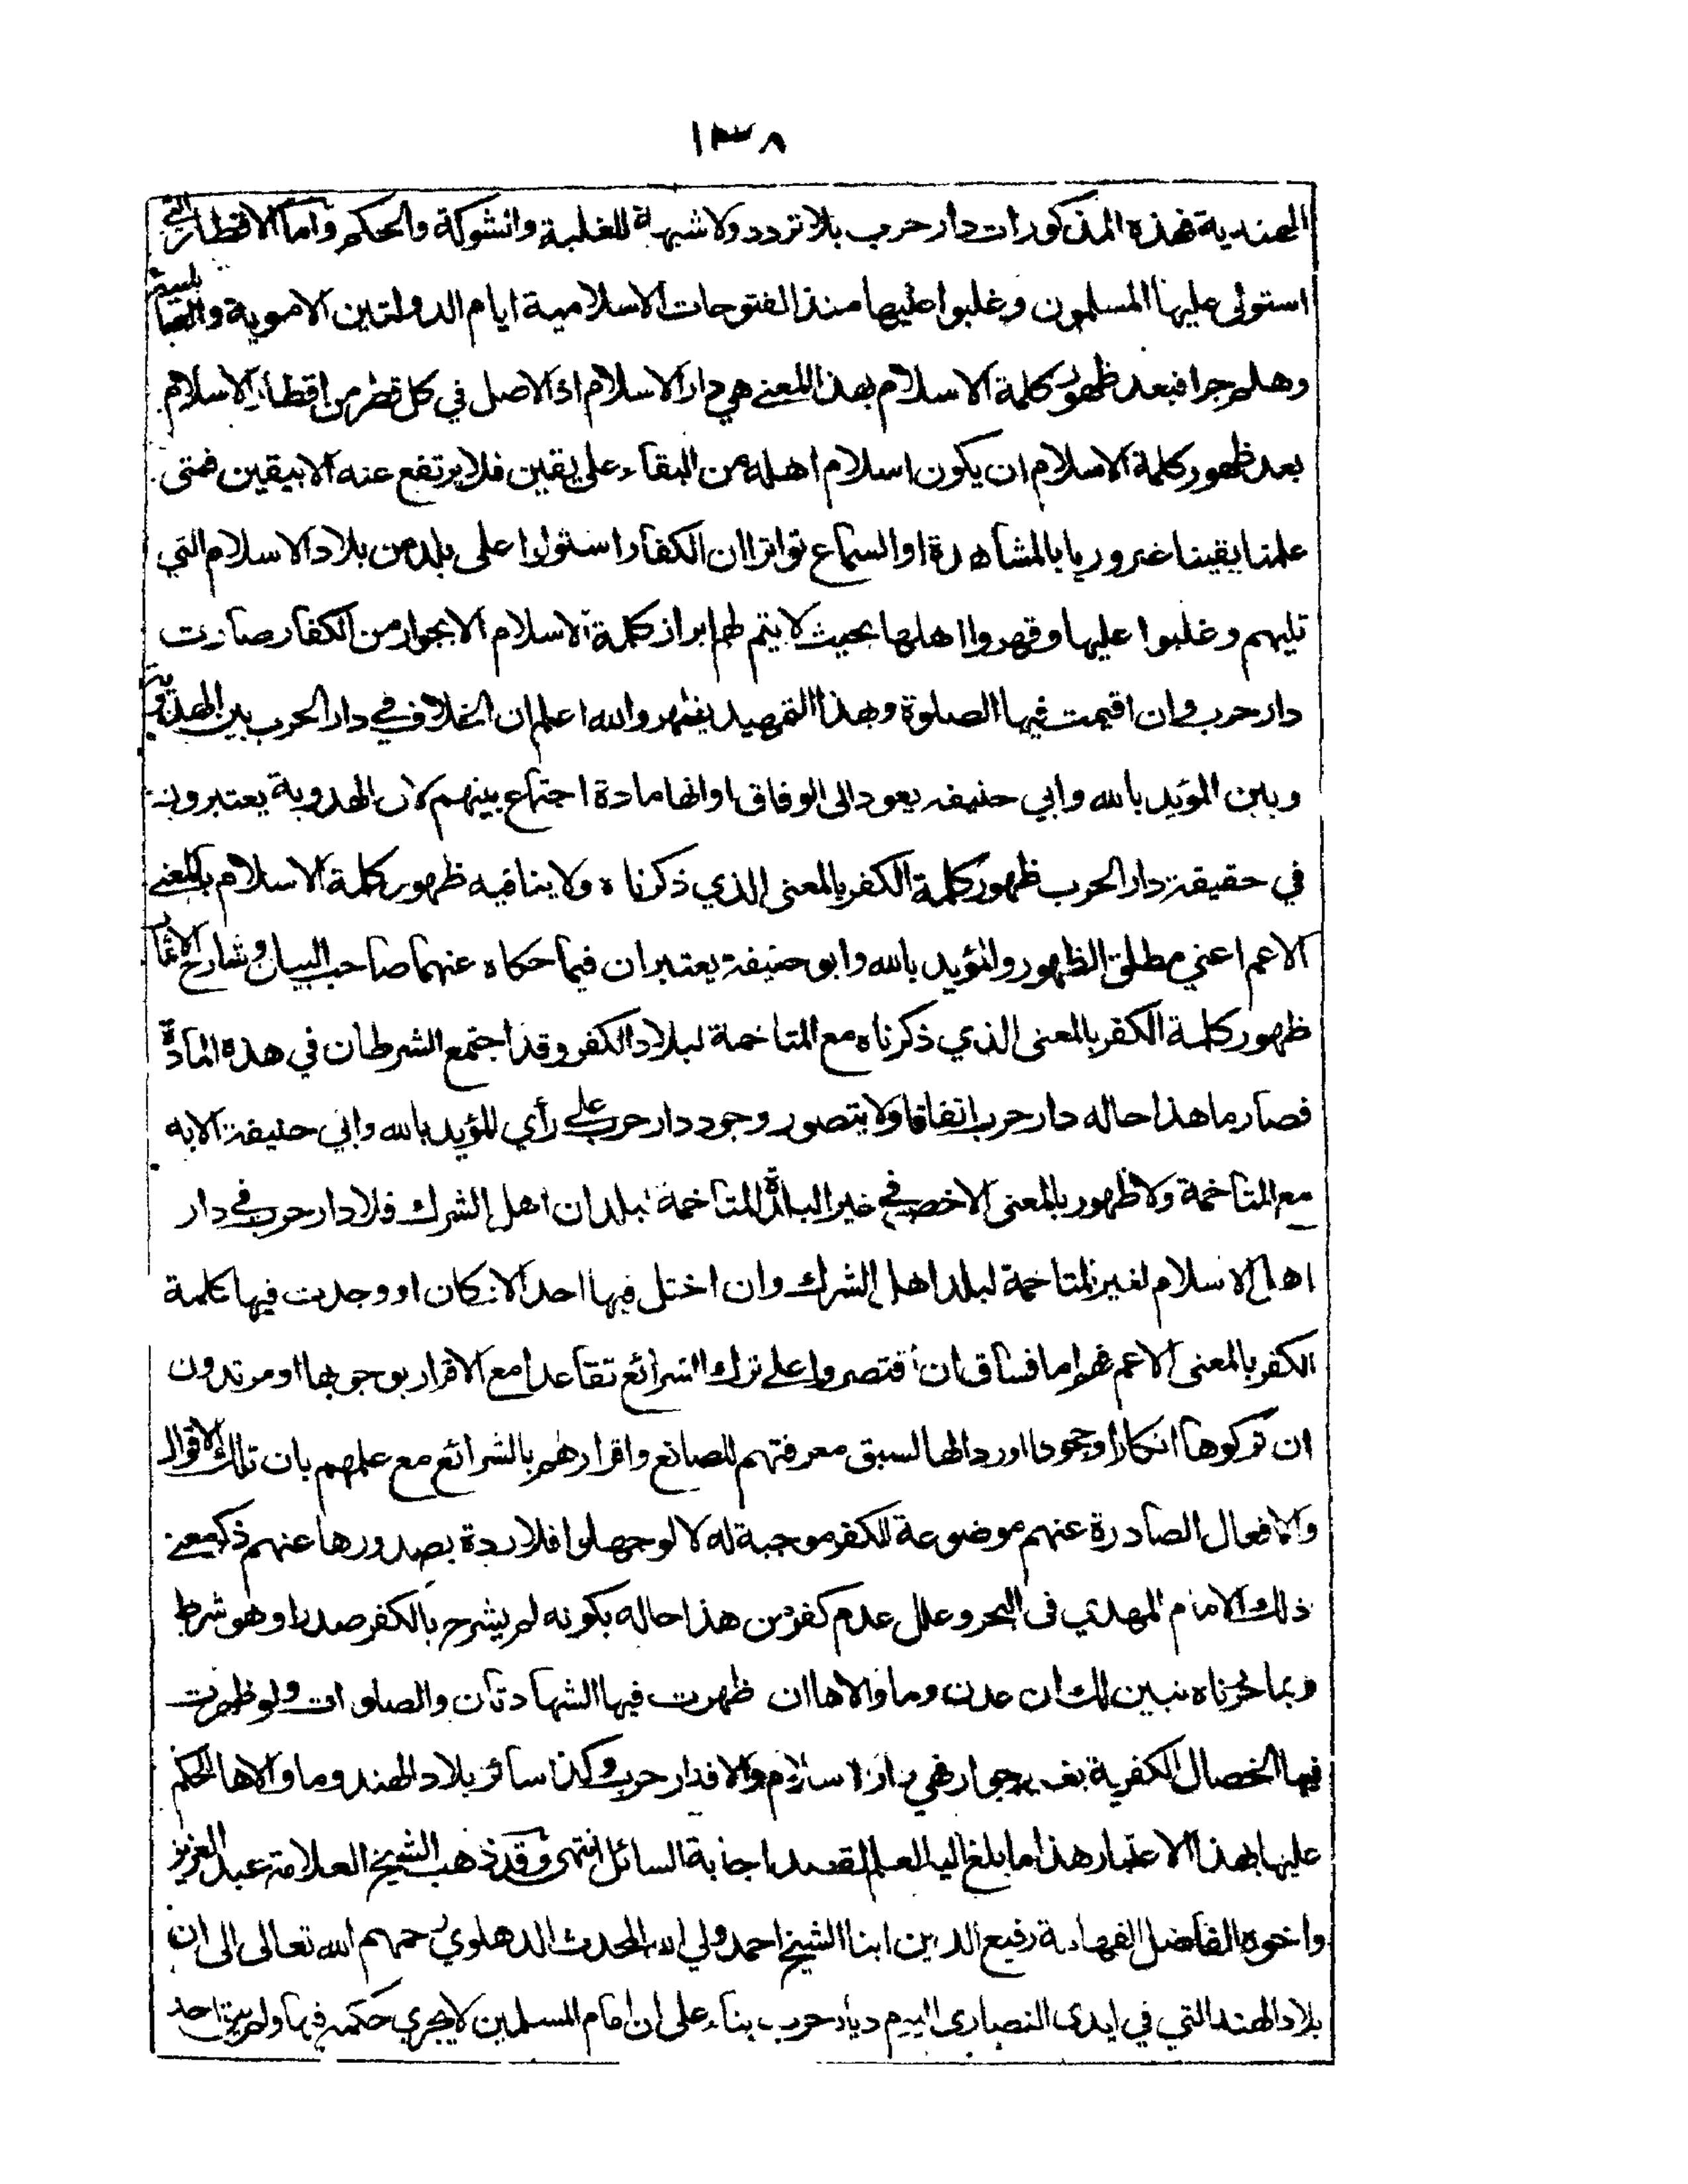 ١٣٨
الهندية فهذه المذكورات دار حرب بلا تردد ولا شبهة للغلبة والشوكة والحكم واما الاقطار التي
استولى عليها المسلمون وغلبوا عليها منذ الفتوحات الاسلامية ايام الدولتين الاموية والعباسية
وهلم جرا فبعد ظهور كلمة الاسلام بهذا المعنى هي دار الاسلام اذ الاصل في كل قطر من اقطار الاسلام
بعد ظهور كلمة الاسلام ان يكون اسلام اهله من البقاء على يقين فلا يرتفع عنه الا بيقين فمتى
علمنا يقينا ضروريا بالمشاهدة او السماع تواترا ان الكفار استولوا على بلد من بلاد الاسلام التي
تليهم وغلبوا عليها وقهروا اهلها بحيث لا يتم لهم ابراز كلمة الاسلام الا بجوار من الكفار صارت
دار حرب وان اقيمت فيها الصلوة وبهذا التمهيد يظهر والله اعلم ان الخلاف في دار الحرب بين الهدوية
وبين المؤيد بالله وابي حنيفه يعود الى الوفاق او انها مادة اجتماع بينهم لان الهدوية يعتبرون
في حقيقة دار الحرب ظهور كلمة الكفر بالمعنى الذي ذكرناه ولا ينافيه ظهور كلمة الاسلام بالمعنى
الاعم اعني مطلق الظهور والمؤيد بالله وابو حنيفة يعتبران فيما حكاه عنهما صاحب البيان وشارح الاثمار
ظهور كلمة الكفر بالمعنى الذي ذكرناه مع المتاخمة لبلاد الكفر وقد اجتمع الشرطان في هذه المادة
فصار ما هذا حاله دار حرب اتفاقا ولا يتصور وجود دار حرب على رأي المؤيد بالله وابي حنيفة الا به
مع المتاخمة ولا ظهور بالمعنى الاخص في غير البلدة المتاخمة لبلدان اهل الشرك فلا دار حرب في دار
اهل الاسلام لغير المتاخمة لبلد اهل الشرك وان اختل فيها احد الاركان او وجدت فيها كلمة
الكفر بالمعنى الاعم فهم اما فساق ان اقتصروا على ترك الشرائع تقاعدا مع الاقرار بوجوبها او مرتدون
ان تركوها انكارا وجحودا او ردا لها لسبق معرفتهم للصانع واقرارهم بالشرائع مع علمهم بان تلك الاقوال
والافعال الصادرة عنهم موضوعة للكفر موجبة له لا لو جهلوا فلا ردة بصدورها عنهم ذكر معنى
ذلك الامام المهدي في البحر وعلل عدم كفر من هذا حاله بكونه لم يشرح بالكفر صدرا وهو شرط
وبما حررناه تبين لك ان عدن وما والاها ان ظهرت فيها الشهادتان والصلوات ولو ظهرت
فيها الخصال الكفرية بغير جوار فهي دار اسلام والا فدار حرب وكذا سائر بلاد الهند وما والاها الحكم
عليها بهذا الاعتبار هذا ما بلغ اليه العلم لقصد اجابة السائل انتهى وقد ذهب الشيخ العلامة عبد العزيز
واخوه الفاضل الفهامة رفيع الدين ابنا الشيخ احمد ولي الله المحدث الدهلوي رحمهم الله تعالى الى ان
بلاد الهند التي في ايدى النصارى اليوم ديار حرب بناء على ان امام المسلمين لا يجري حكمه فيها ولم يبق احد